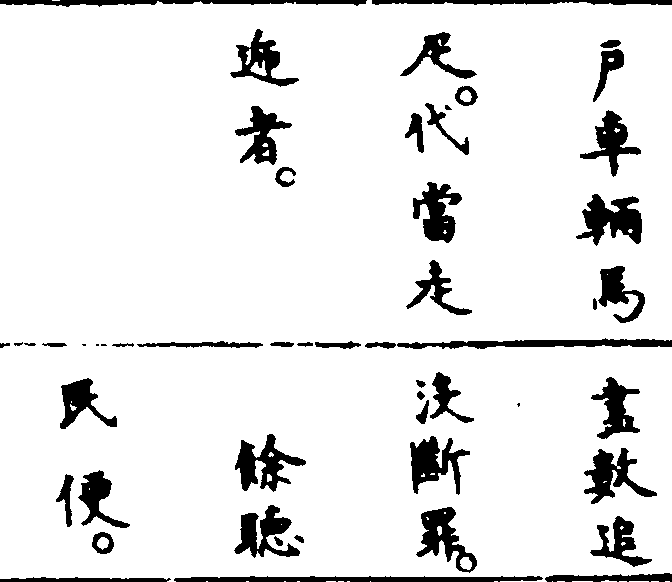 戸車輛馬
疋。代當走
逓者。
盡數追
沒斷罪。
餘聽
民便。